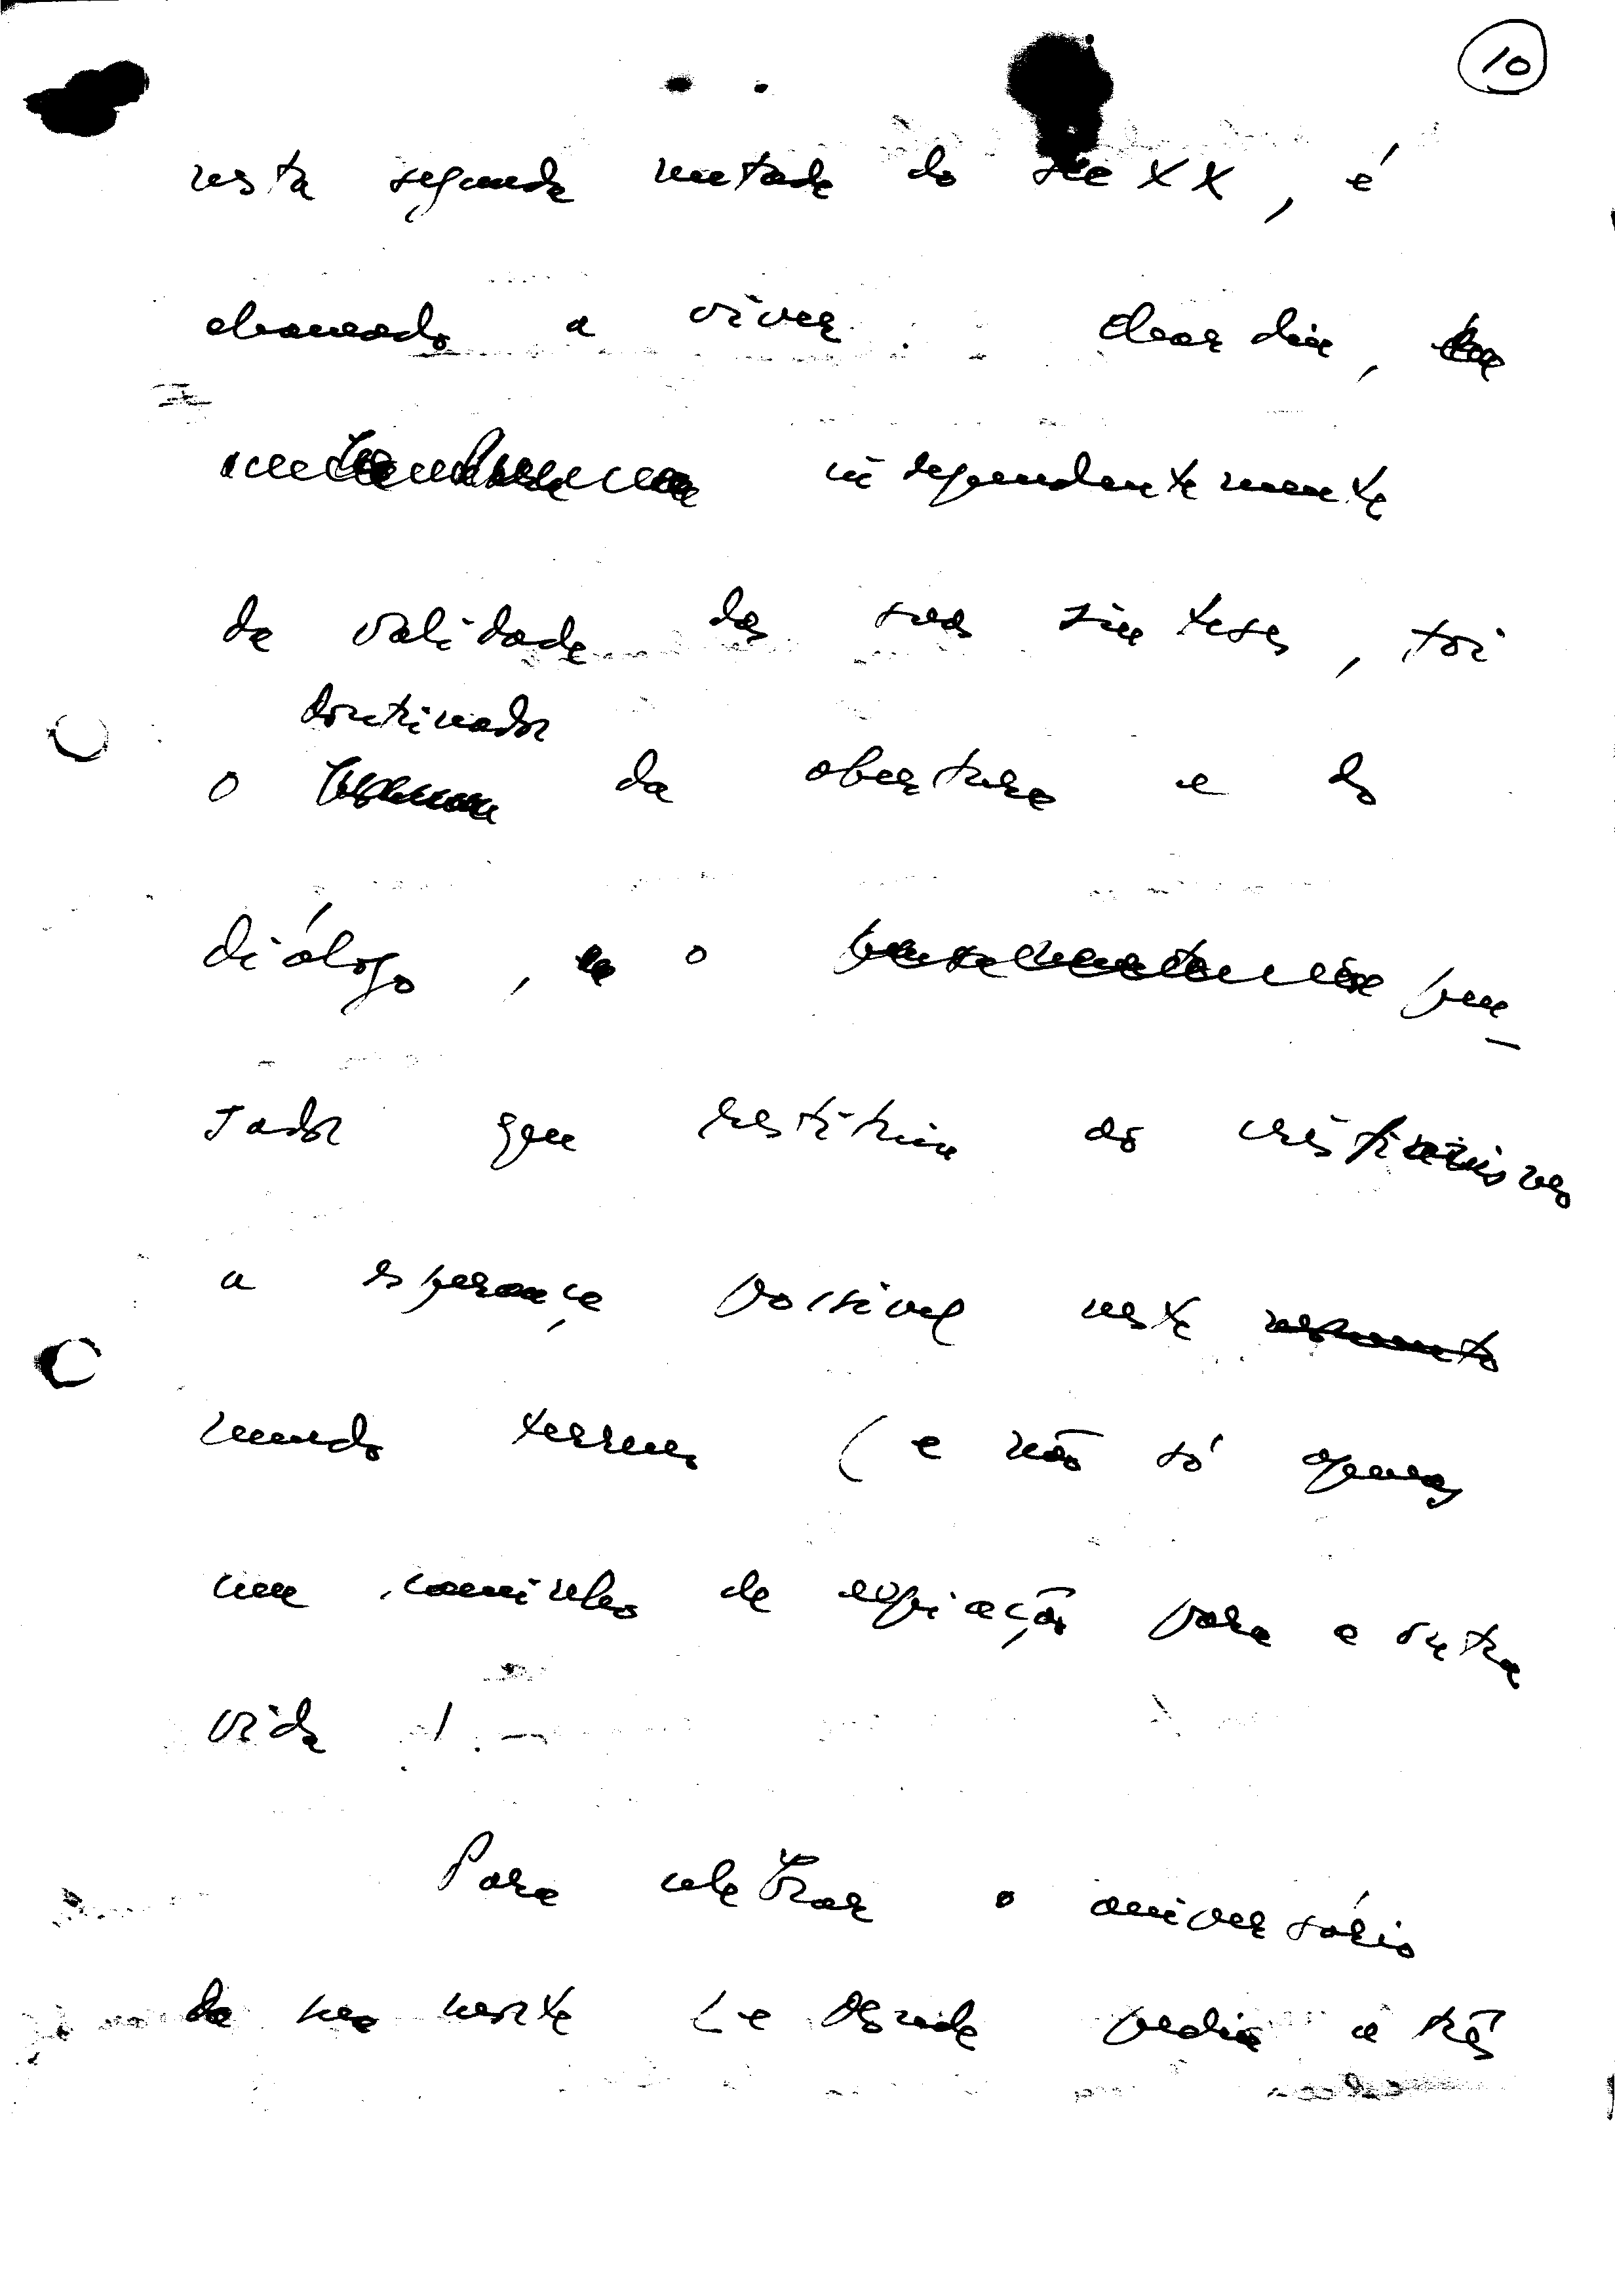 10
nesta segunda metade do séc XX, é
chamado a viver. Chardin,
independentemente
da validade das suas sínteses, foi
doutrinador
o da abertura e do
diálogo, o pen-
sador que restituiu ao cristianismo
a esperança possível neste momento
mundo terreno (e não só apenas
um caminho de expiação para a outra
vida). -
Para celebrar o aniversário
da sua morte Le Monde pedia a três